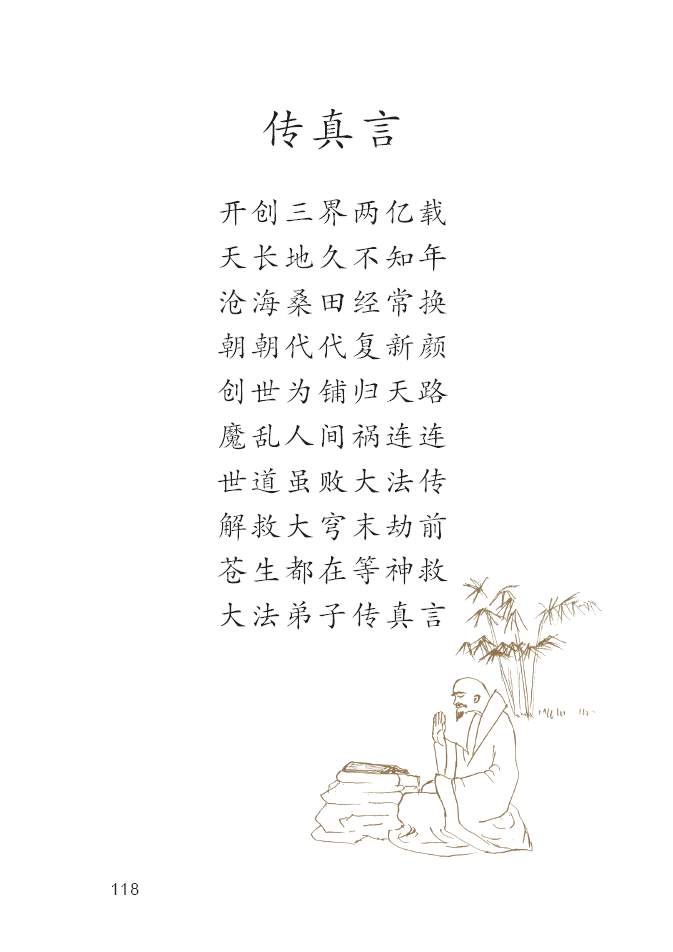 传真言
开创三界两亿载
天长地久不知年
沧海桑田经常换
朝朝代代复新颜
创世为铺归天路
魔乱人间祸连连
世道虽败大法传
解救大穹末劫前
苍生都在等神救
大法弟子传真言
118